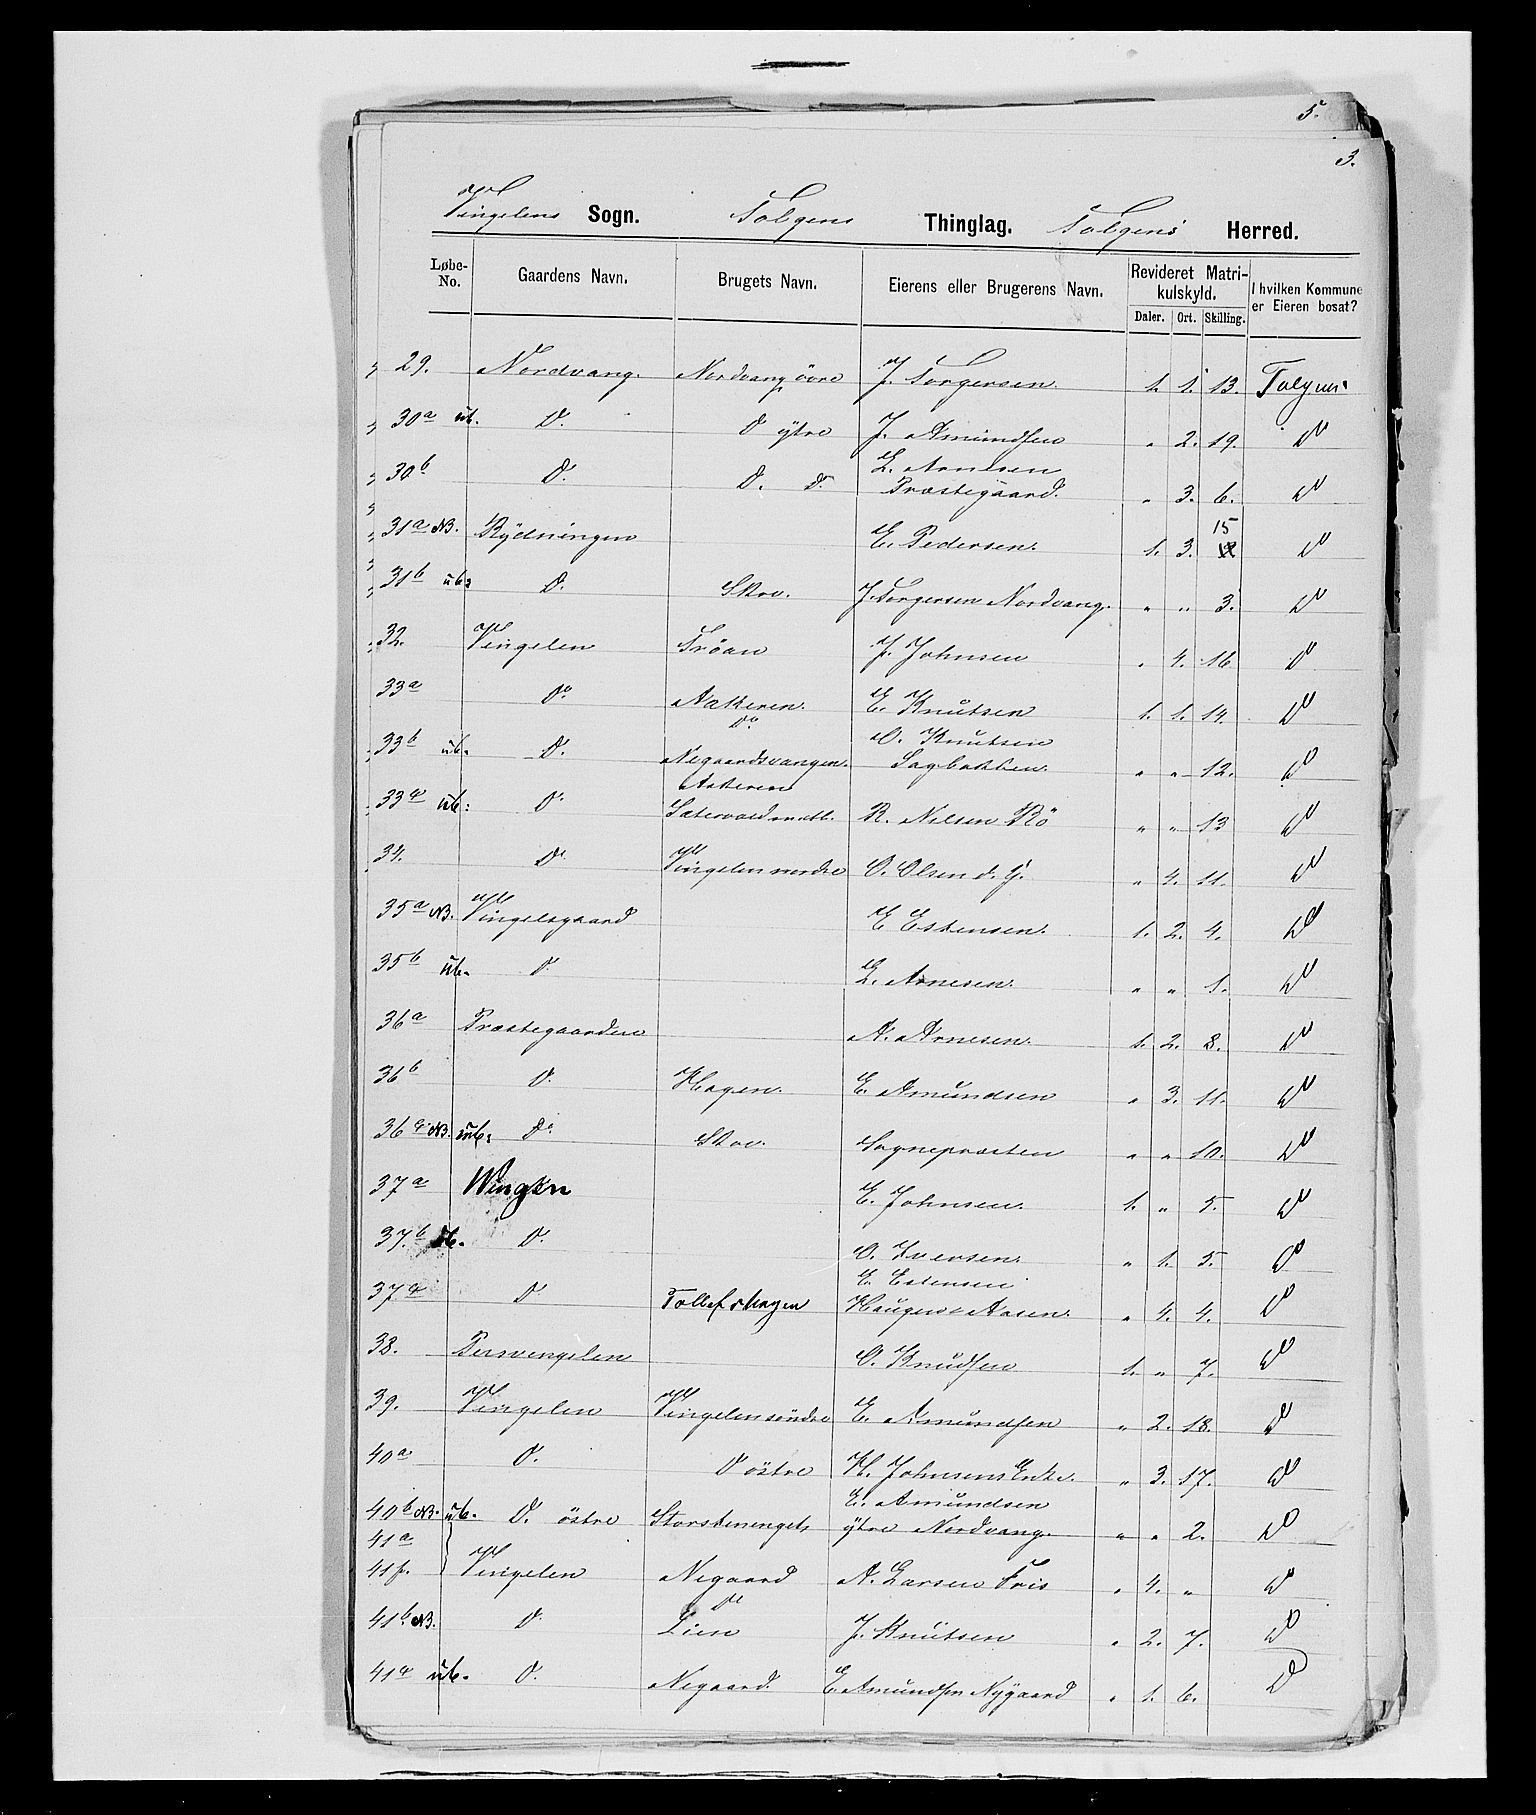 5.
3.
Vingelens Sogn. Tolgens Thinglag. Tolgens Herred.
Løbe-No. Gaardens Navn. Brugets Navn. Eierens eller Brugerens Navn. Revideret Matrikulskyld. Daler. Ort. Skilling. I hvilken Kommune er Eieren bosat?
29. Nordvang. Nordvang övre J. Torgersen. 1. 1. 13. Tolgens
30a ub. Do. Do ytre J. Amundsen " 2. 19. Do
30b Do. Do. Do. L. Arnesen
Præstegaard. " 3. 6. Do
31a NB. Rydningen E. Pedersen. 1. 3. 15 Do
31b ub. Do. Skov. J. Torgersen Nordvang. " " 3. Do
32. Vingelen Tröan J. Johnsen " 4. 16 Do
33a Do. Aakeren. E. Knutsen 1. 1. 14. Do
33b ub. Do. Do
Negaardsvangen. O. Knutsen
Sagbakken. " " 12. Do
33c ub. Do. Aakeren
R. Nilsen Rö " " 13 Do
34. Do. Vingelen nordre O. Olsen d. y. " 4. 11. Do
35a NB. Vingelsgaard E Estensen. 1. 2. 4. Do
35b ub. Do. L. Arnesen. " " 1. Do
36a Præstegaarden A. Arnesen. 1. 2. 8. Do
36b Do. Hagen. E. Amundsen " 3. 11. Do
36c NB. ub. Do. Skov. Sognepræsten " " 10. Do
37a Wingen E. Johnsen. 1. " 5. Do
37b ub. Do. O. Iversen. " 1. 5. Do
37c Do Tollefshagen E. Estensen
Haugen Aasen. " 4. 4. Do
38. Persvengelen O. Knudsen 1. " 7. Do
39. Vingelen Vingelen söndre E. Amundsen " 2. 18. Do
40a Do. Do östre H. Johnsens Enke. " 3. 17. Do
40b NB. ub. Do. östre Storstenenget, E. Amundsen
ytre Nordvang. " " 2. Do
41a
41f. Vingelen Negaard A. Larsen Friis " 4. " Do
41b NB. Do. Do
Lien J. Knutsen " 2. 7. Do
41c ub. Do. Negaard. E Amundsen Nygaard " 1. 6. Do